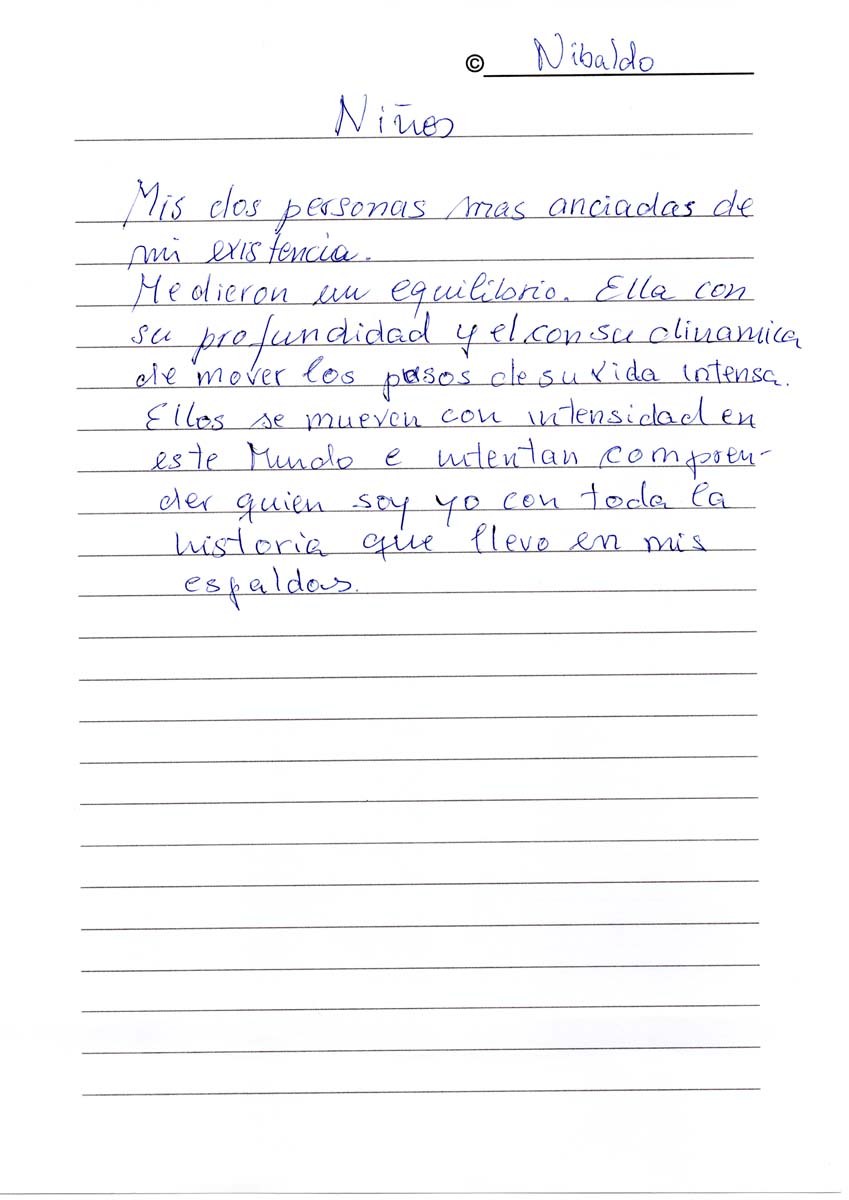 © Nibaldo
Niños
Mis dos personas mas anciadas de
mi existencia.
Me dieron un equilibrio. Ella con
su profundidad y el con su dinamica
de mover los pasos de su vida intensa.
Ellos se mueven con intensidad en
este Mundo e intentan compren-
der quien soy yo con toda la
historia que llevo en mis
espaldas.